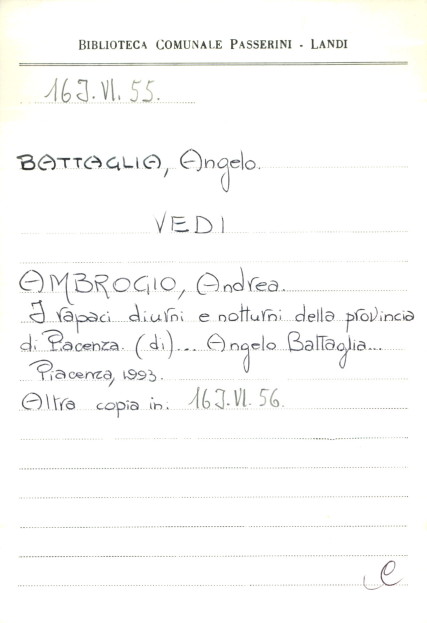 BIBLIOTECA COMUNALE PASSERINI - LANDI
16 I. VI. 55.
BATTAGLIA, Angelo.
VEDI
AMBROGIO, Andrea.
I rapaci diurni e notturni della provincia
di Piacenza. (di)... Angelo Battaglia...
Piacenza, 1993.
Altra copia in: 16 I. VI. 56.
C